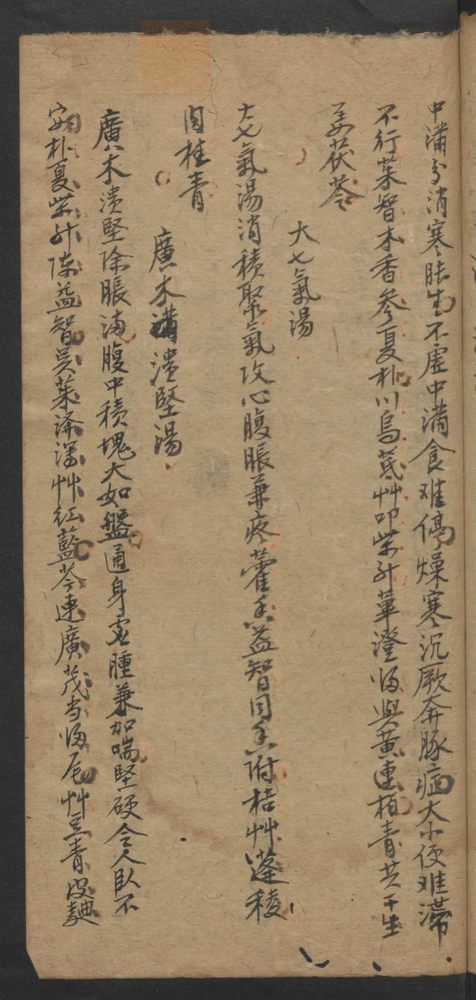 中滿分消寒胀生不虛中滿食难停燥寒沉厥奔豚症大小便难滯
不行茱智木香參夏朴川烏芪艸叩柴升蓽澄归與黃連柏青共干生
姜茯苓
大七氣湯
大七氣湯消積聚氣攻心腹脹兼疼藿香益智同香附桔艸蓬稜
肉桂青
廣木溝潰堅湯
廣木潰堅除脹滿腹中積塊大如盤通身虛腫兼加喘堅硬令人臥不
安朴夏柴升陈益智吳茱泽泻艸红藍芩連廣茂当归尾艸豆青皮麯